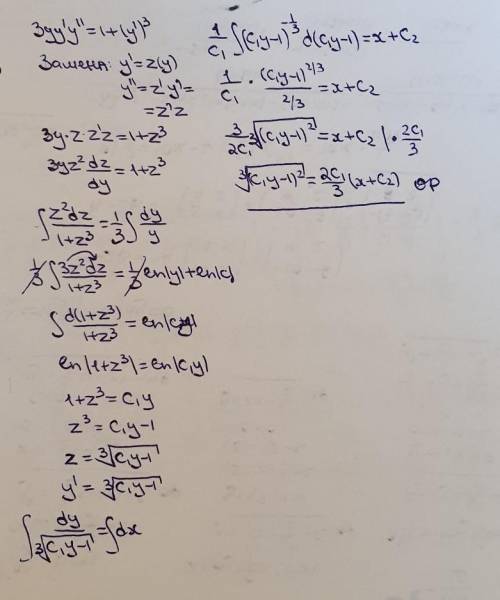 3yy'y'' = 1+(y')³
Замена: y' = z(y)
y'' = z'y' =
= z'z
3y·z·z'z = 1+z³
3yz² dz/dy = 1+z³
∫ z²dz/(1+z³) = 1/3 ∫ dy/y
1/3 ∫ 3z²dz/(1+z³) = 1/3 ln|y|+ln|C|
∫ d(1+z³)/(1+z³) = ln|C₁y|
ln|1+z³| = ln|C₁y|
1+z³ = C₁y
z³ = C₁y-1
z = ∛(C₁y-1)
y' = ∛(C₁y-1)
∫ dy/∛(C₁y-1) = ∫dx
1/C₁ ∫(C₁y-1)^(-1/3) d(C₁y-1) = x+C₂
1/C₁ · (C₁y-1)^(2/3)/(2/3) = x+C₂
3/(2C₁) ∛(C₁y-1)² = x+C₂ |· 2C₁/3
∛(C₁y-1)² = 2C₁/3 (x+C₂) ор